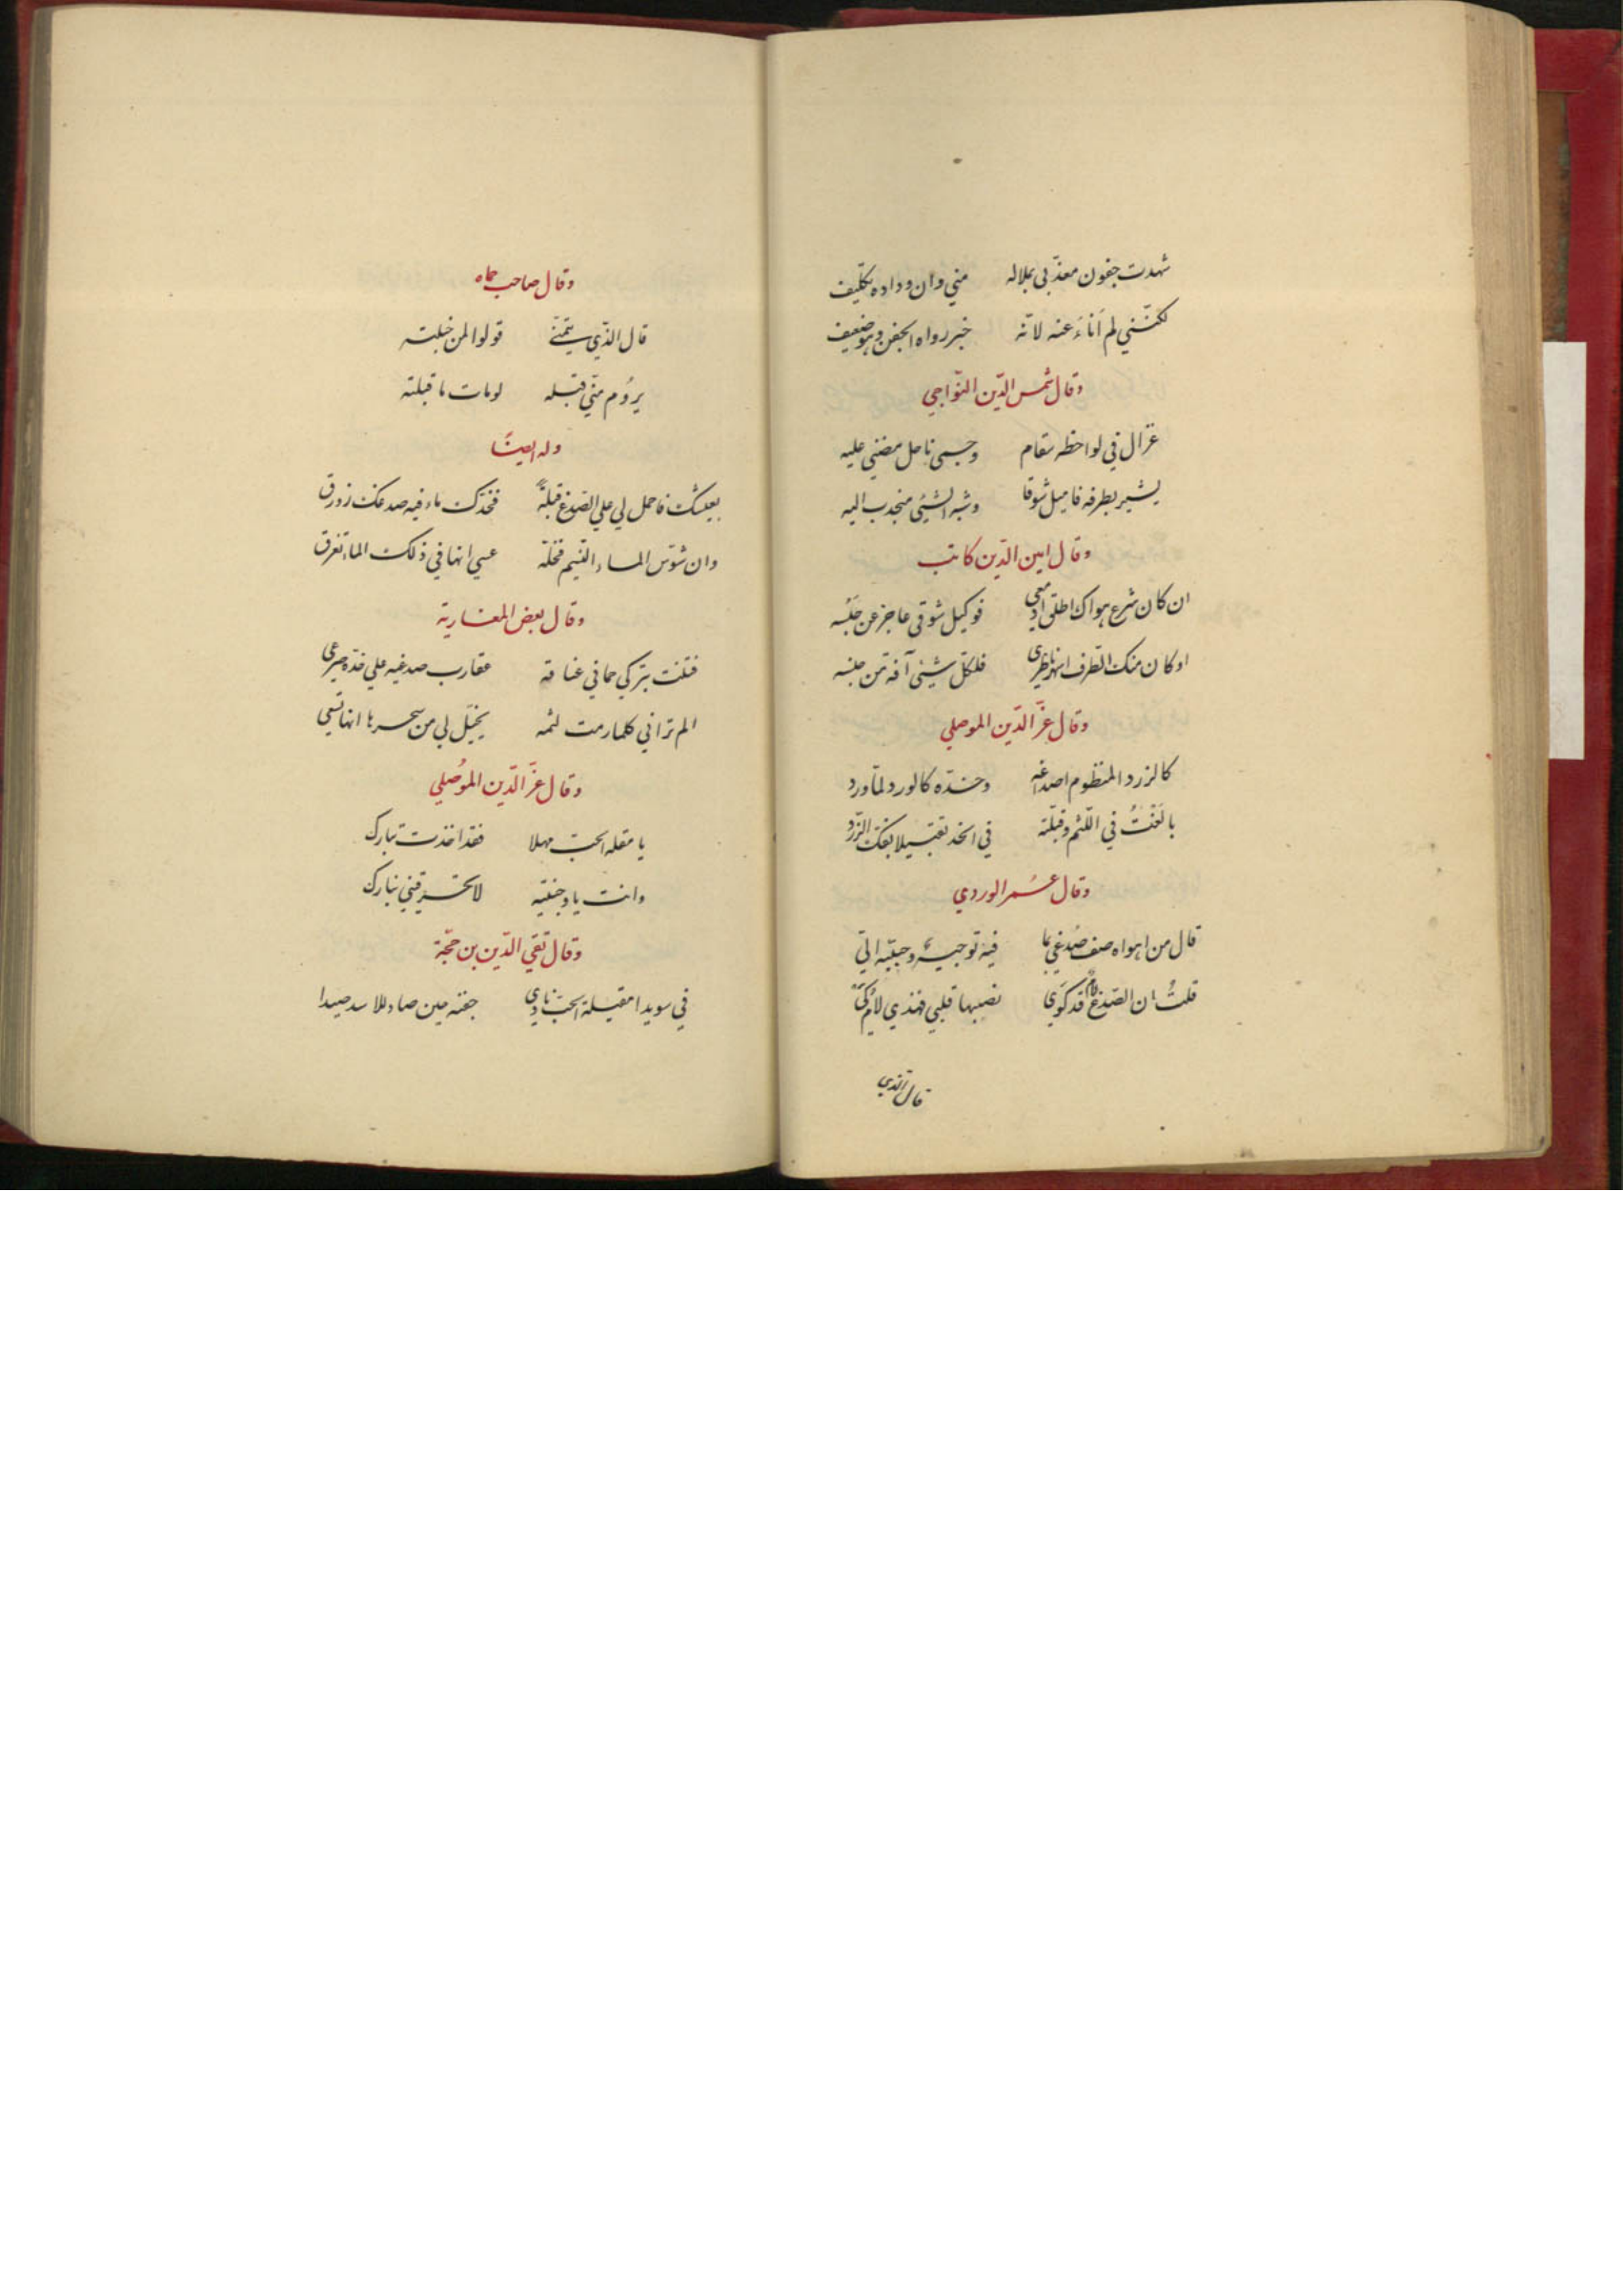 شهدت جفون معذّبي بملاله منّي وان وداده تكليف
لكنّني لم أناءَ عنه لانّه خبر رواه الجفن وهو ضعيف
وقال شمس الدّين النّواجي
غزال في لواحظه سقام وجسمي ناحل مضني عليه
يشير بطرفه فاميل شوقا وشبه الشيئ منجذب اليه
وقال امين الدّين كاتب
ان كان شرع هواك اطلق ادمعي فوكيل شوقي عاجز عن حَبْسه
او كان منك الطّرف اسهر ناظري فلكلّ شيئ آفة من جنسه
وقال عزّ الدّين الموصلي
كالزرد المنظوم اصداغه وخدّه كالورد لمّا ورد
بالَغْتُ في اللّثم وقبلته في الخد تقبيلا يفك الزّرد
وقال عُمر الوردي
قال من اهواه صف صُدغي بما فيه توجيهٌ وجبّيه اتي
قلتُ ان الصّدغ لامٌ قد كَوَي نصبها قلبي فهذي لامُ كَي
قال الذي
وقال صاحب حماه
قال الذّي يتمنّي قولوا لمن خبلته
يرُوم منّي قبله لومات ما قبلته
وله ايضًا
بعيشك فاحمل لي علي الصّدغ قبلةً فخدّك ماء فيه صدغك زورق
وان شوّش الماء النّسيم فخلّه عسي انها في ذلك الماء تغرق
وقال بعض المغاربة
فتنت بتركي حماني عناقه عقارب صدغيه علي خدّه صرعي
الم تراني كلما رمت لثمه يخيّل لي من سحرها انها تسعي
وقال عزَّ الدّين الموُصلي
يا مقله الحبّ مهلا فقد اخذت بتارك
وانت يا وجنتيه لا تحرقيني بنارك
وقال تقي الدّين بن حجّة
في سويدا مقيلة الحبّ نادي جفنه حين صاد للاسد صيدا